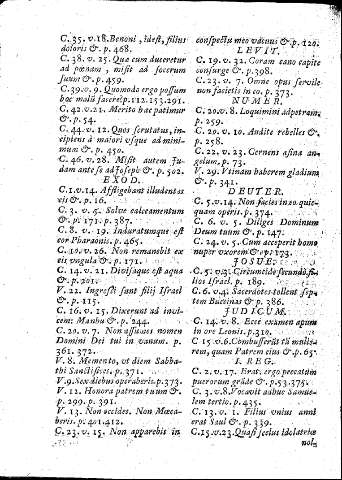 C. 35. v. 18. Benoni, idest, filius
doloris &. p. 468.
C. 38. v. 25. Quæ cum duceretur
ad pœnam, misit ad socerum
suum &. p. 459.
C. 39. v. 9. Quomodo ergo possum
hoc malū facere? p. 112. 153. 291.
C. 42. v. 21. Merito hæc patimur
&. p. 54.
C. 44. v. 12. Quos scrutatus, in-
cipiens à maiori vsque ad mini-
mum &. p. 450.
C. 46. v. 28. Misit autem Ju-
dam ante se ad Joseph &. p. 502.
EXOD.
C. 1. v. 14. Affligebant illudentes
eis &. p. 16.
C. 3. v. 5. Solve calceamentum
&. p. 171. p. 387.
C. 8. v. 19. Induratumque est
cor Pharaonis. p. 465.
C. 10. v. 26. Non remanebit ex
eis ungula &. p. 171.
C. 14. v. 21. Divisaque est aqua
&. p. 201.
V. 22. Ingressi sunt filij Israel
&. p. 115.
C. 16. v. 15. Dixerunt ad invi-
cem: Manhu &. p. 244.
C. 20. v. 7. Non assumes nomen
Domini Dei tui in vanum. p.
361. 372.
V. 8. Memento, vt diem Sabba-
thi Sanctifices. p. 371.
V. 9. Sex diebus operaberis. p. 373.
V. 12. Honora patrem tuum &.
p. 299. p. 391.
V. 13. Non occides. Non Mœca-
beris. p. 401. 412.
C. 23. v. 15. Non apparebis in
conspectu meo vacuus &. p. 120.
LEVIT.
C. 19. v. 32. Coram cano capite
consurge &. p. 398.
C. 23. v. 7. Omne opus servile
non facietis in eo. p. 373.
NUMER.
C. 20. v. 8. Loquimini ad petram.
p. 259.
C. 20. v. 10. Audite rebelles &.
p. 258.
C. 22. v. 23. Cernens asina an-
gelum. p. 73.
V. 29. Vtinam haberem gladium
&. p. 341.
DEUTER.
C. 5. v. 14. Non facies in eo quic-
quam operis. p. 374.
C. 6. v. 5. Diliges Dominum
Deum tuum &. p. 147.
C. 24. v. 5. Cum acceperit homo
nuper vxorem & p. 173.
JOSUE.
C. 5. Circumcide secundò fi-
lios Israel. p. 189.
C. 6. v. 4. Sacerdotes tollent sep-
tem Buccinas & p. 386.
JUDICUM.
C. 14. v. 8. Ecce examen apum
in ore Leonis. p. 310.
C. 15 v. 6. Combusserūt tā mulie-
rem, quam Patrem eius & p. 65.
I. REG.
C. 2. v. 17. Erat ergo peccatum
puerorum grāde &. p. 53. 375.
C. 3. v. 8. Vocavit adhuc Samue-
lem tertio. p. 435.
C. 13. v. 1. Filius vnius anni
erat Saul &. p. 339.
C. 15. v. 23. Quasi scelus idolatriæ
nol